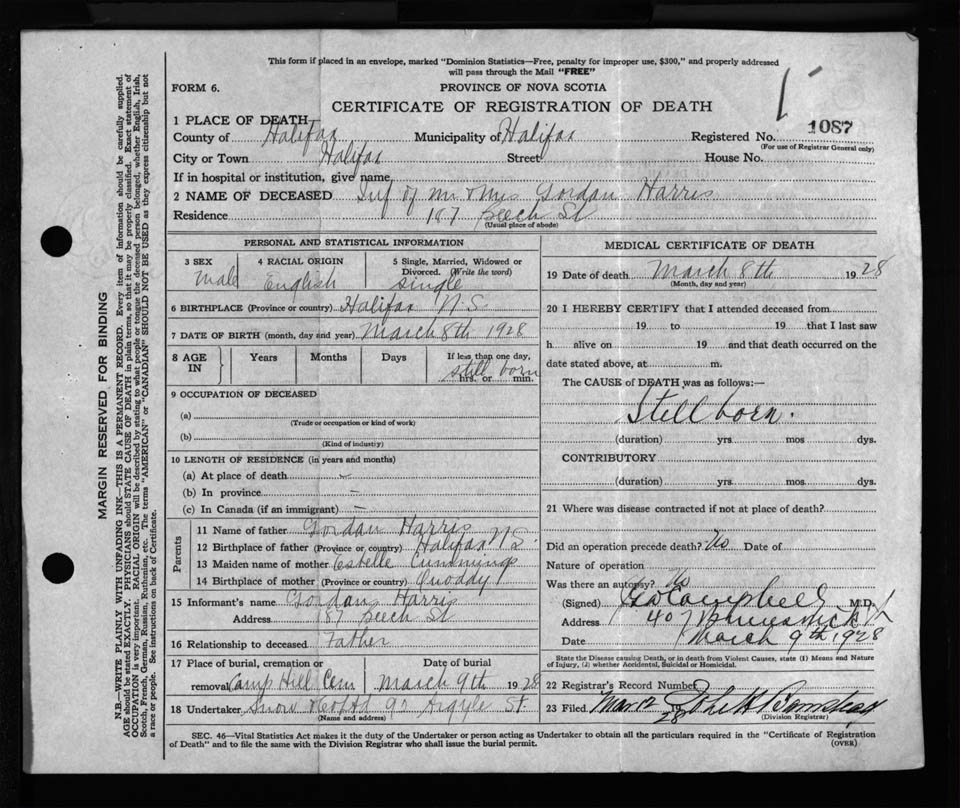 This form if placed in an envelope, marked "Dominion Statistics—Free, penalty for improper use, $300," and properly addressed
will pass through the Mail "FREE"
FORM 6.
PROVINCE OF NOVA SCOTIA
CERTIFICATE OF REGISTRATION OF DEATH
Registered No. 1087
(For use of Registrar General only)
1 PLACE OF DEATH
County of Halifax Municipality of Halifax
City or Town Halifax Street House No.
If in hospital or institution, give name
2 NAME OF DECEASED Inf of Mr & Mrs Gordan Harris
Residence 187 Beech St
(Usual place of abode)
PERSONAL AND STATISTICAL INFORMATION
3 SEX Male
4 RACIAL ORIGIN English
5 Single, Married, Widowed or Divorced. (Write the word) single
6 BIRTHPLACE (Province or country) Halifax N.S.
7 DATE OF BIRTH (month, day and year) March 8th 1928
8 AGE IN Years Months Days If less than one day, hrs. or min. still born
9 OCCUPATION OF DECEASED
(a)
(Trade or occupation or kind of work)
(b)
(Kind of industry)
10 LENGTH OF RESIDENCE (in years and months)
(a) At place of death –
(b) In province –
(c) In Canada (if an immigrant) –
Parents
11 Name of father Gordan Harris
12 Birthplace of father (Province or country) Halifax N.S.
13 Maiden name of mother Estelle Cummings
14 Birthplace of mother (Province or country) Quoddy
15 Informant's name Gordan Harris
Address 187 Beech St
16 Relationship to deceased Father
17 Place of burial, cremation or removal Camp Hill Cem
Date of burial March 9th 1928
18 Undertaker Snow 90 Argyle St.
(Name and address)
MEDICAL CERTIFICATE OF DEATH
19 Date of death March 8th 1928
(Month, day and year)
20 I HEREBY CERTIFY that I attended deceased from
19 to 19 that I last saw
h alive on 19 and that death occurred on the
date stated above, at m.
The CAUSE of DEATH was as follows:—
Still born.
(duration) yrs mos dys.
CONTRIBUTORY
(duration) yrs mos dys.
21 Where was disease contracted if not at place of death?
Did an operation precede death? No Date of
Nature of operation
Was there an autopsy? No
(Signed) Campbell M.D.
Address 407 Brunswick
Date March 9th 1928
State the Disease causing Death, or in death from Violent Causes, state (1) Means and Nature
of Injury, (2) whether Accidental, Suicidal or Homicidal.
22 Registrar's Record Number
23 Filed Mar 12 1928
(Division Registrar)
SEC. 46—Vital Statistics Act makes it the duty of the Undertaker or person acting as Undertaker to obtain all the particulars required in the "Certificate of Registration
of Death" and to file the same with the Division Registrar who shall issue the burial permit.
(OVER)
MARGIN RESERVED FOR BINDING
N.B.—WRITE PLAINLY WITH UNFADING INK—THIS IS A PERMANENT RECORD. Every item of information should be carefully supplied.
AGE should be stated EXACTLY. PHYSICIANS should STATE CAUSE OF DEATH in plain terms, so that it may be properly classified. Exact statement of
OCCUPATION is very important. RACIAL ORIGIN will be described by stating to what people or tongue the deceased person belonged, whether English, Irish,
Scotch, French, German, Russian, Ruthenian, etc. The terms "AMERICAN" or "CANADIAN" SHOULD NOT BE USED as they express citizenship but not
a race or people. See instructions on back of Certificate.